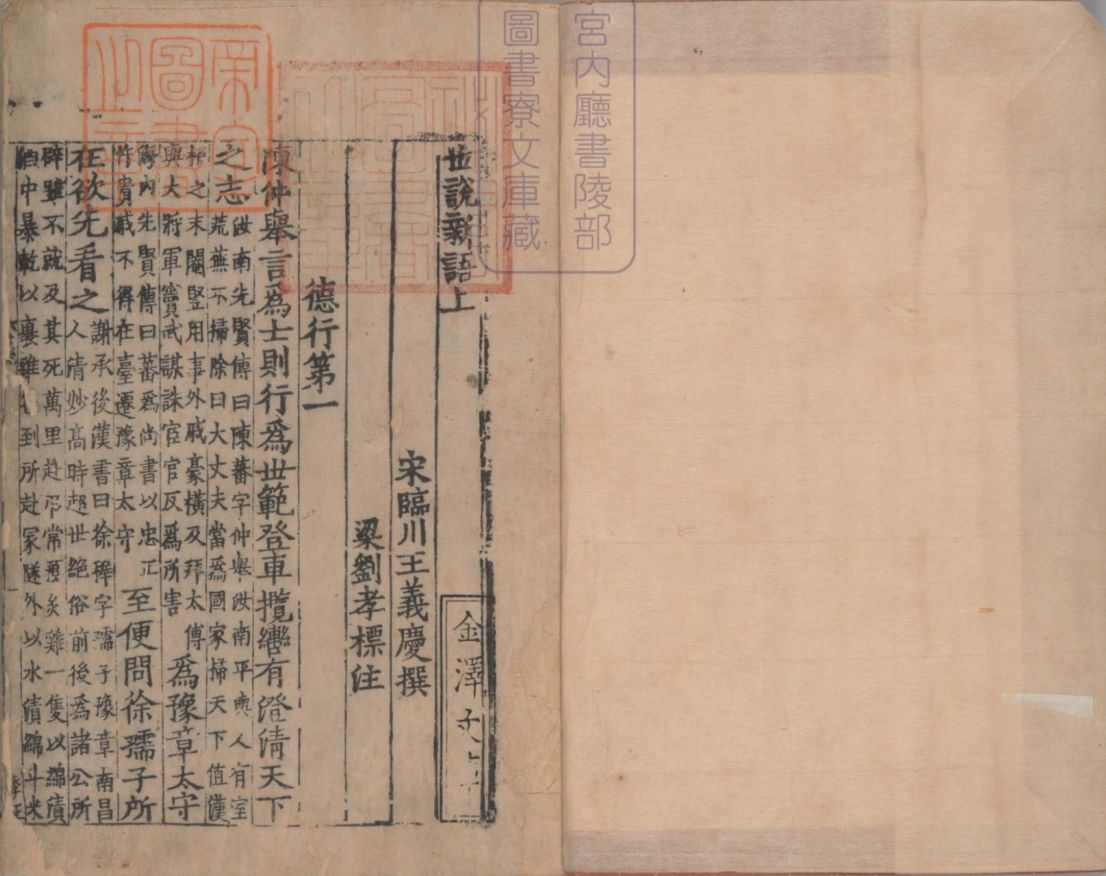 宮内廳書陵部
圖書寮文庫藏
世說新語上
金澤文庫
宋臨川王義慶撰
梁劉孝標注
德行第一
陳仲舉言爲士則行爲世範登車攬轡有澄清天下
之志
汝南先賢傳曰陳蕃字仲舉汝南平輿人有室
荒蕪不掃除曰大丈夫當爲國家掃天下值漢
桓之末閹豎用事外戚豪橫及拜太傅
與大將軍竇武謀誅宦官反爲所害
爲豫章太守
海內先賢傳曰蕃爲尚書以忠正
忤貴戚不得在臺遷豫章太守
至便問徐孺子所
在欲先看之
謝承後漢書曰徐稺字孺子豫章南昌
人清妙高時超世絕俗前後爲諸公所
辟雖不就及其死萬里赴弔常預炙雞一隻以綿漬
酒中暴乾以裹雞徑到所赴冢隧外以水漬綿斗米